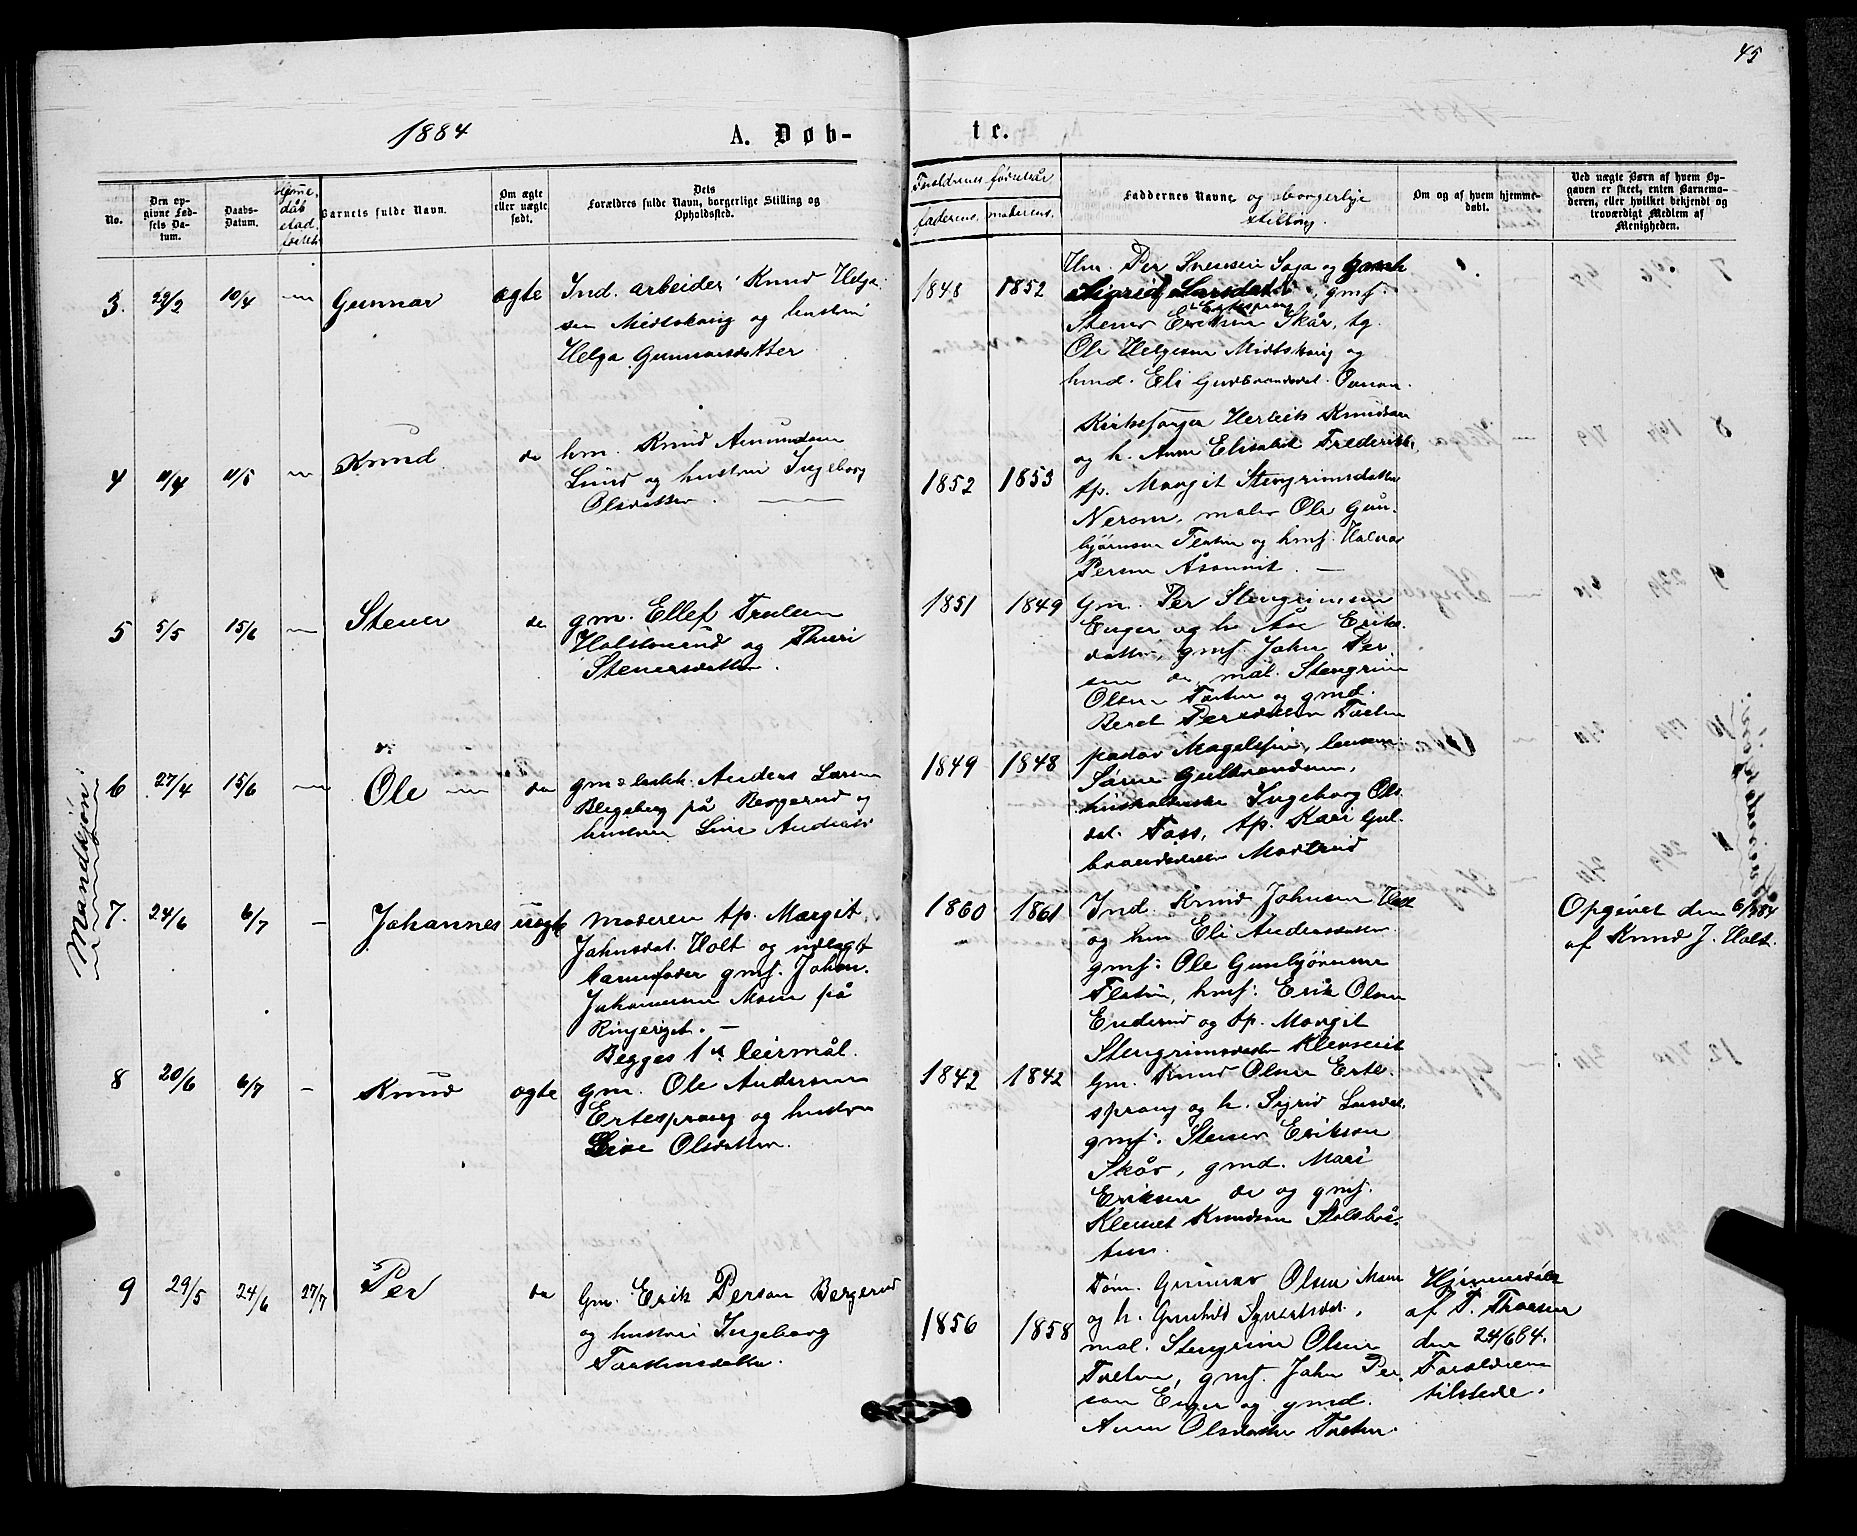 45
1884
A. Døb-
te.
No.
Den op-
givne Fød-
sels Da-
tum.
Daabs-
Datum.
Barnets fulde Navn.
Om ægte
eller uægte
født.
Dets
Forældres fulde Navn, borgerlige Stilling og
Opholdssted.
Forældrenes fødselsår
faderens. moderens.
Faddernes Navne og borgerlige
stilling.
Om og af hvem hjemme-
døbt.
Ved uægte Børn af hvem Op-
gaven er skeet, enten Barnemo-
deren, eller hvilket bekjendt og
troværdigt Medlem af
Menigheden.
Mandkjøn.
3. 29/2 10/4 — Gunnar ægte
Ind. arbeider Knud Helge-
sen Midtskoug og hustru
Helga Gunnarsdatter
1848 1852
Per Svensen Saga og
Sigrid Larsdat. gmf.
Ertesprang
Stener Eriksen Skår, tg.
Ole Helgesen Midtskoug og
hmd. Eli Gudbrandsdat.
4 11/4 11/5 — Knud do
hm. Knud Amundsen
Lund og hustru Ingeborg
Olsdatter. —
1852 1853
Kirkesanger Herleik Knudsen
og h. Anne Elisabet Frederikke,
tp. Margit Stengrimsdatter
Nerom, maler Ole Gun-
bjørnsen Flaten og hmf. Halvor
Persen Åsonvit. —
5 5/5 15/6 — Stener do
gm. Ellef Trulsen
Holstenrud og Thuri
Stenersdatter.
1851 1849
gm. Per Stengrimsen
Enger og h. Åse Eriks-
datter, gmf. John Per-
sen do, mal. Stengrim
Olsen Toeten og gmd.
Beret Persdatter Toeten
6 27/4 15/6 — Ole — do
gm. Anders Larsen
Blegeberg på og
hustru Live Andersd.
1849 1848
pastor Magelssen, lensm.
Søren Gulbrandsen,
husholderske Ingeborg Ols-
dat. Foss, tp. Kari Gul-
brandsdatter Mortrud
7. 24/6 6/7 - Johannes uægte
moderen tp. Margit
Johnsdat. Holt og udlagt
barnefader gmf. Johan
Johannesen Moen på
Ringeriget. —
Begges 1ste leirmål.
1860 1861
Ind. Knud Johnsen Holt
og hm Eli Andersdatter
gmf: Ole Gunbjørnsen
Flaten, hmf. Erik Olsen
Enderud og tp. Margit
Stengrimsdatter Kleveseit
Opgivet den 6/7 84
af Knud J. Holt.
8 20/6 6/7 - Knud ægte
gm. Ole Andersen
Ertesprang og hustru
Live Olsdatter.
1842 1842
gm. Knud Olsen Erte-
sprang og h. Sigrid Larsdat.
gmf. Stener Eriksen
Skår, gmd. Mari
Eriksen do og gmf.
Klemet Knudsen Stolsbrå-
ten.
9 29/5 24/6 27/7 Per do
Gm. Erik Persen Bergerud
og hustru Ingeborg
Torstensdatter.
1856 1858
Tøm. Gunnar Olsen Moen
og h. Gunhild Syvertsdat.,
mal. Stengrim Olsen
Toeten, gmf. John Per-
sen Enger og gmd.
Anne Olsdatter Toeten.
Hjemmedøbt
af T. Thoesen
den 24/6 84.
Forældrene
tilstede.